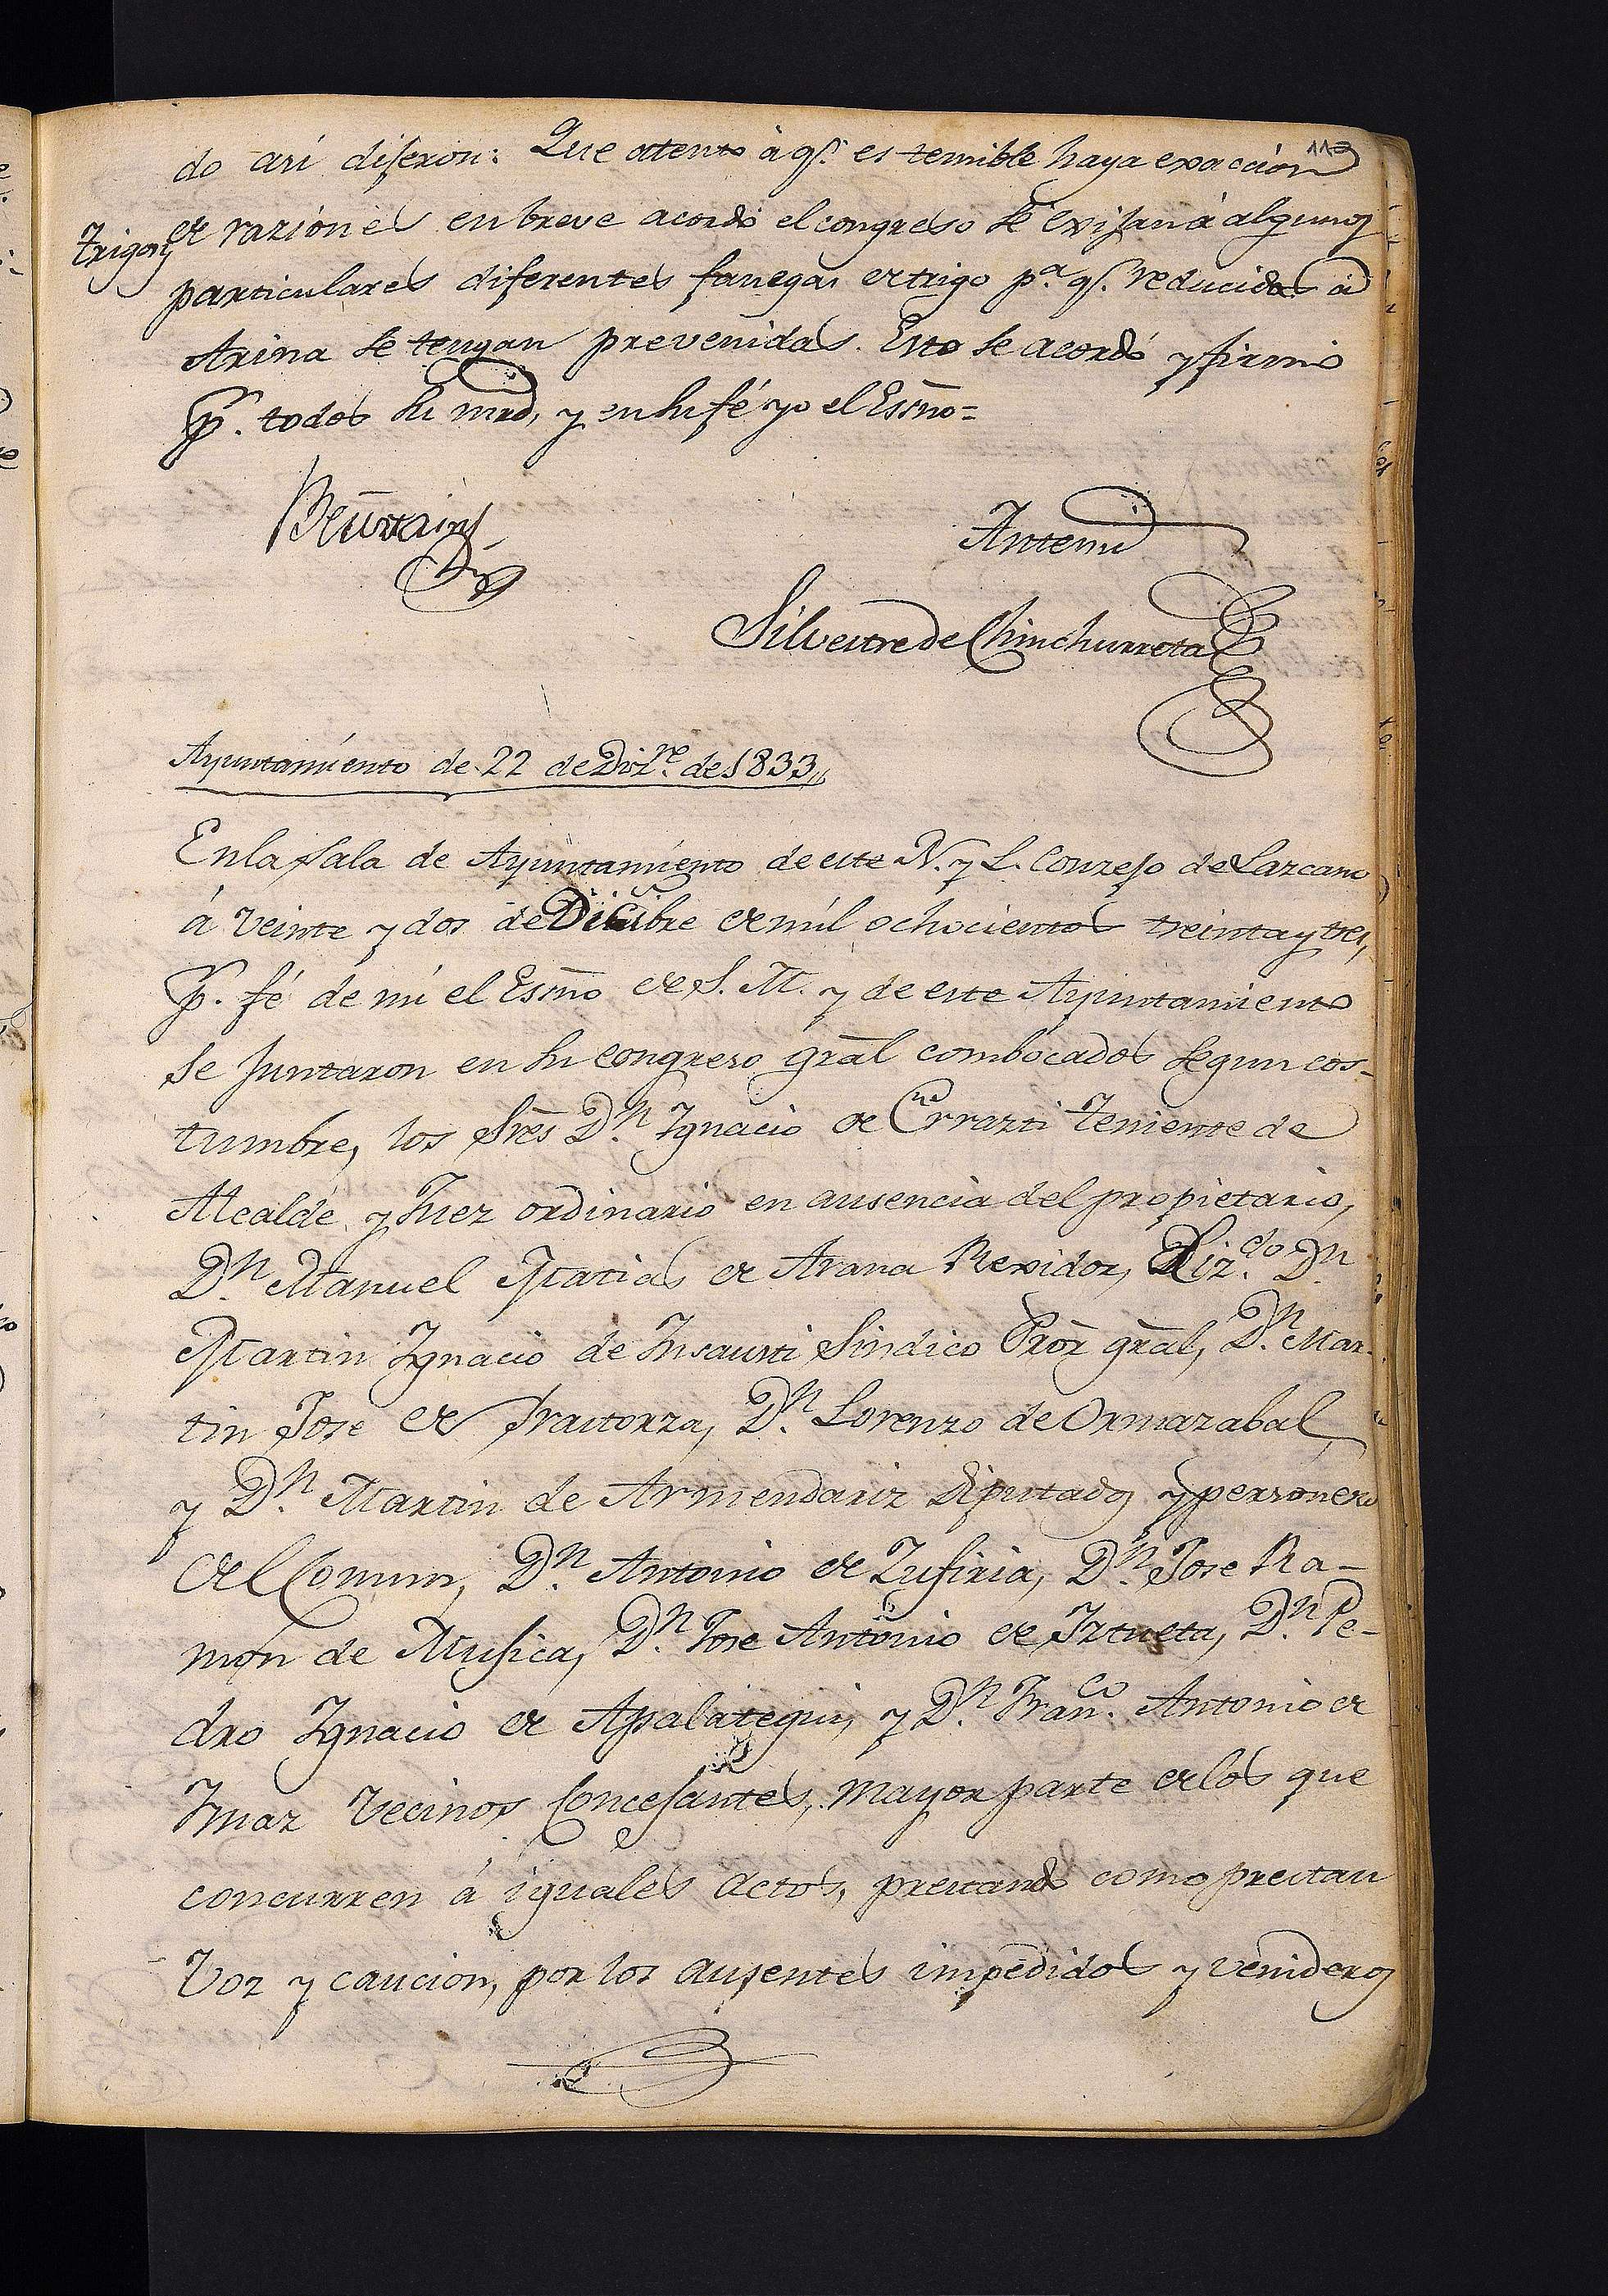 113
do asi dijeron: Que atento á qe. es temible haya exacción
Trigo
de raziones en breve acordó el congreso se exijan á algunos
particulares diferentes fanegas de trigo pa. qe. reducidas á
Arina se tengan prevenidas. Esto se acordó y firmó
pr. todos su mrd, y en su fé yo el Esno=
Antemi
Silvestre de Chinchurreta
Ayuntamiento de 22 de Dizre. de 1833,,
En la sala de Ayuntamiento de este N. y L. Conzejo de Lazcano
á veinte y dos de Dicibre de mil ochocientos treinta y tres,
pr. fé de mi el Esno de S. M. y de este Ayuntamiento
se juntaron en su congreso gral combocados segun cos-
tumbre, los Sres Dn. Ygnacio de Errazti Teniente de
Alcalde y Juez ordinario en ausencia del propietario,
Dn. Manuel Matias de Arana Rexidor, Liz.do Dn
Martin Ygnacio de Insausti Sindico Pror gral, Dn. Mar-
tin Jose de Yraitorza, Dn. Lorenzo de Ormazabal,
y Dn. Martin de Armendariz Diputados y personero
del Comun, Dn. Antonio de Zufiria, Dn. Jose Ra-
mon de Mujica, Dn. Jose Antonio de Iztueta, Dn. Pe-
dro Ygnacio de Apalategui, y Dn. Franco. Antonio de
Ymaz Vecinos Concejantes, mayor parte de los que
concurren á iguales actos, prestando como prestan
Voz y caucion, por los ausentes impedidos y venideros